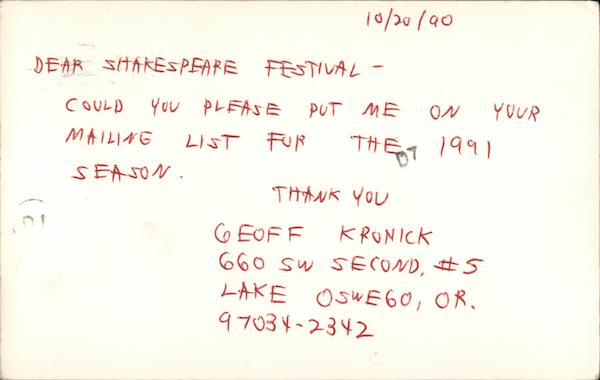 10/20/90
DEAR SHAKESPEARE FESTIVAL -
COULD YOU PLEASE PUT ME ON YOUR
MAILING LIST FOR THE 1991
07
SEASON.
THANK YOU
01
GEOFF KRONICK
660 SW SECOND, #5
LAKE OSWEGO, OR.
97034-2342